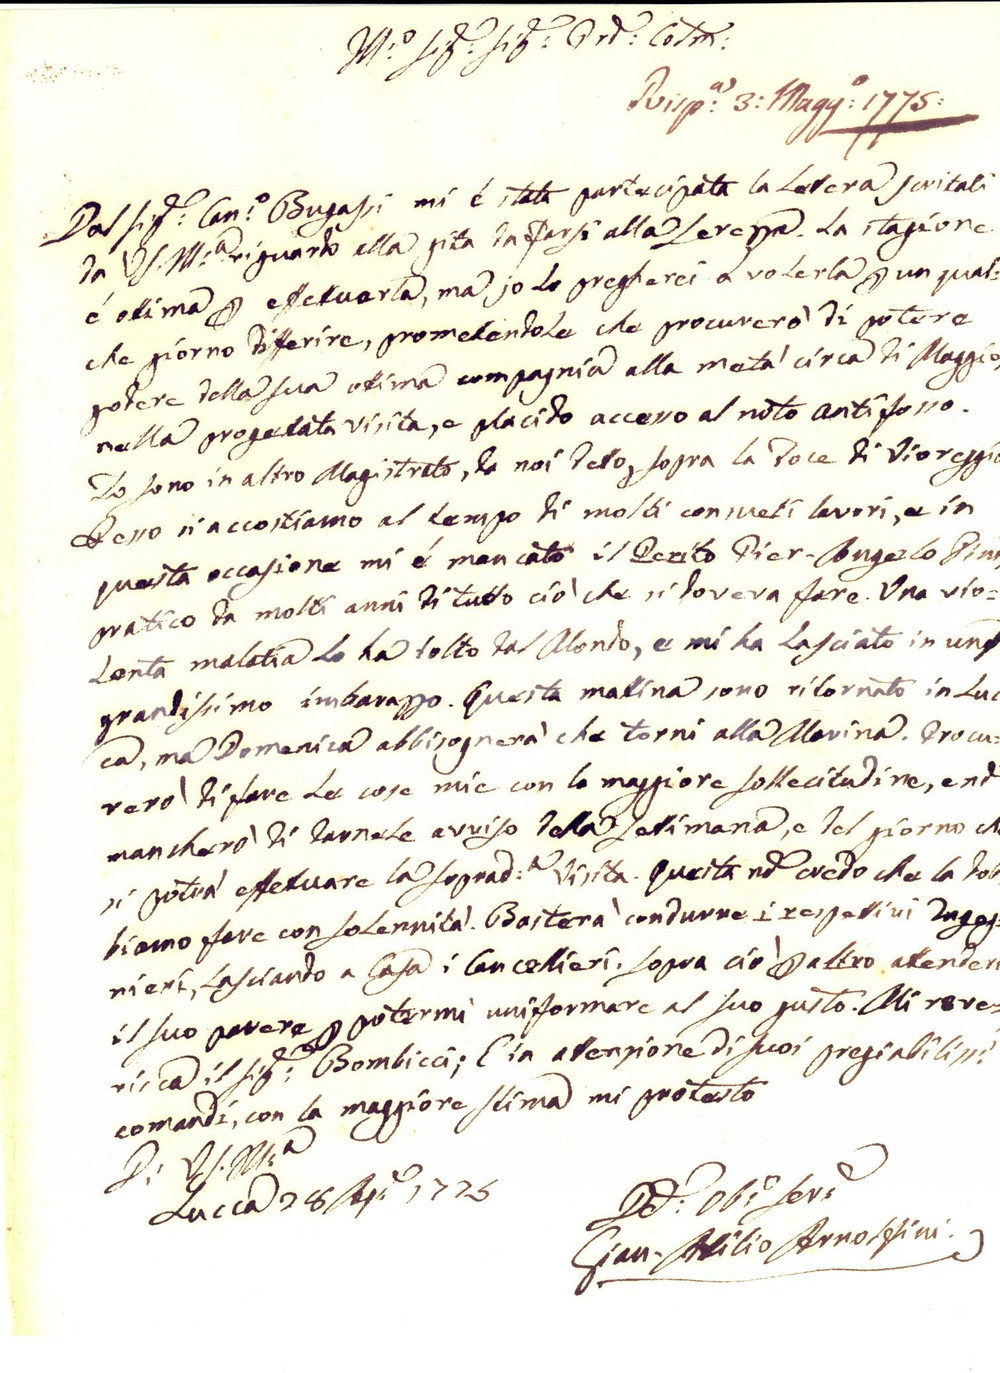 M:o Sig:r Sig:r Prd: Colm:
Risp:a 3: Magg:o 1775:
Dal Sig:r Can:o Bugassi mi é stata partecipata la Lettera scrittali
da V.S. Ill:ma riguardo alla gita da farsi alla Serezza. La stagione
é ottima p effettuarla, ma jo Lo pregherei a volerla p un qual-
che giorno differire, promettendole che procurerò di potere
godere della sua ottima compagnia alla metà circa di Maggio,
nella progettata visita, e placido accesso al noto Antifosso.
Io sono in altro Magistrato, da noi detto, sopra la Foce di Viareggio
Adesso ci accostiamo al tempo di molti consueti lavori, e in
questa occasione mi é mancato il Perito Pier-Angelo Pini,
pratico da molti anni di tutto ciò che si doveva fare. Una vio=
Lenta malatia Lo ha tolto dal Mondo, e mi ha Lasciato in un
grandissimo imbarazzo. Questa mattina sono ritornato in Luc
ca, ma Domenica abbisognerà che torni alla Marina. Procu-
rerò di fare Le cose mie con la maggiore sollecitudine, e nō
mancherò di darnele avviso della Settimana, e del giorno che
si potrà effettuare la soprad:a Visita. Questa nō credo che la dob
biamo fare con solennità. Basterà condurre i respettivi Ingeg-
nieri, Lasciando a Casa i Cancellieri. Sopra ciò p altro attenderò
il suo parere p potermi uniformare al suo gusto. Mi reve-
risca il Sig:r Bombicci; E in attenzione di suoi pregiabilissi
comandi, con la maggiore stima mi protesto
Di V.S. Ill:ma
Lucca 28 Ap:e 1775
D: Obb: Ser:e
Gian-Attilio Arnolfini.